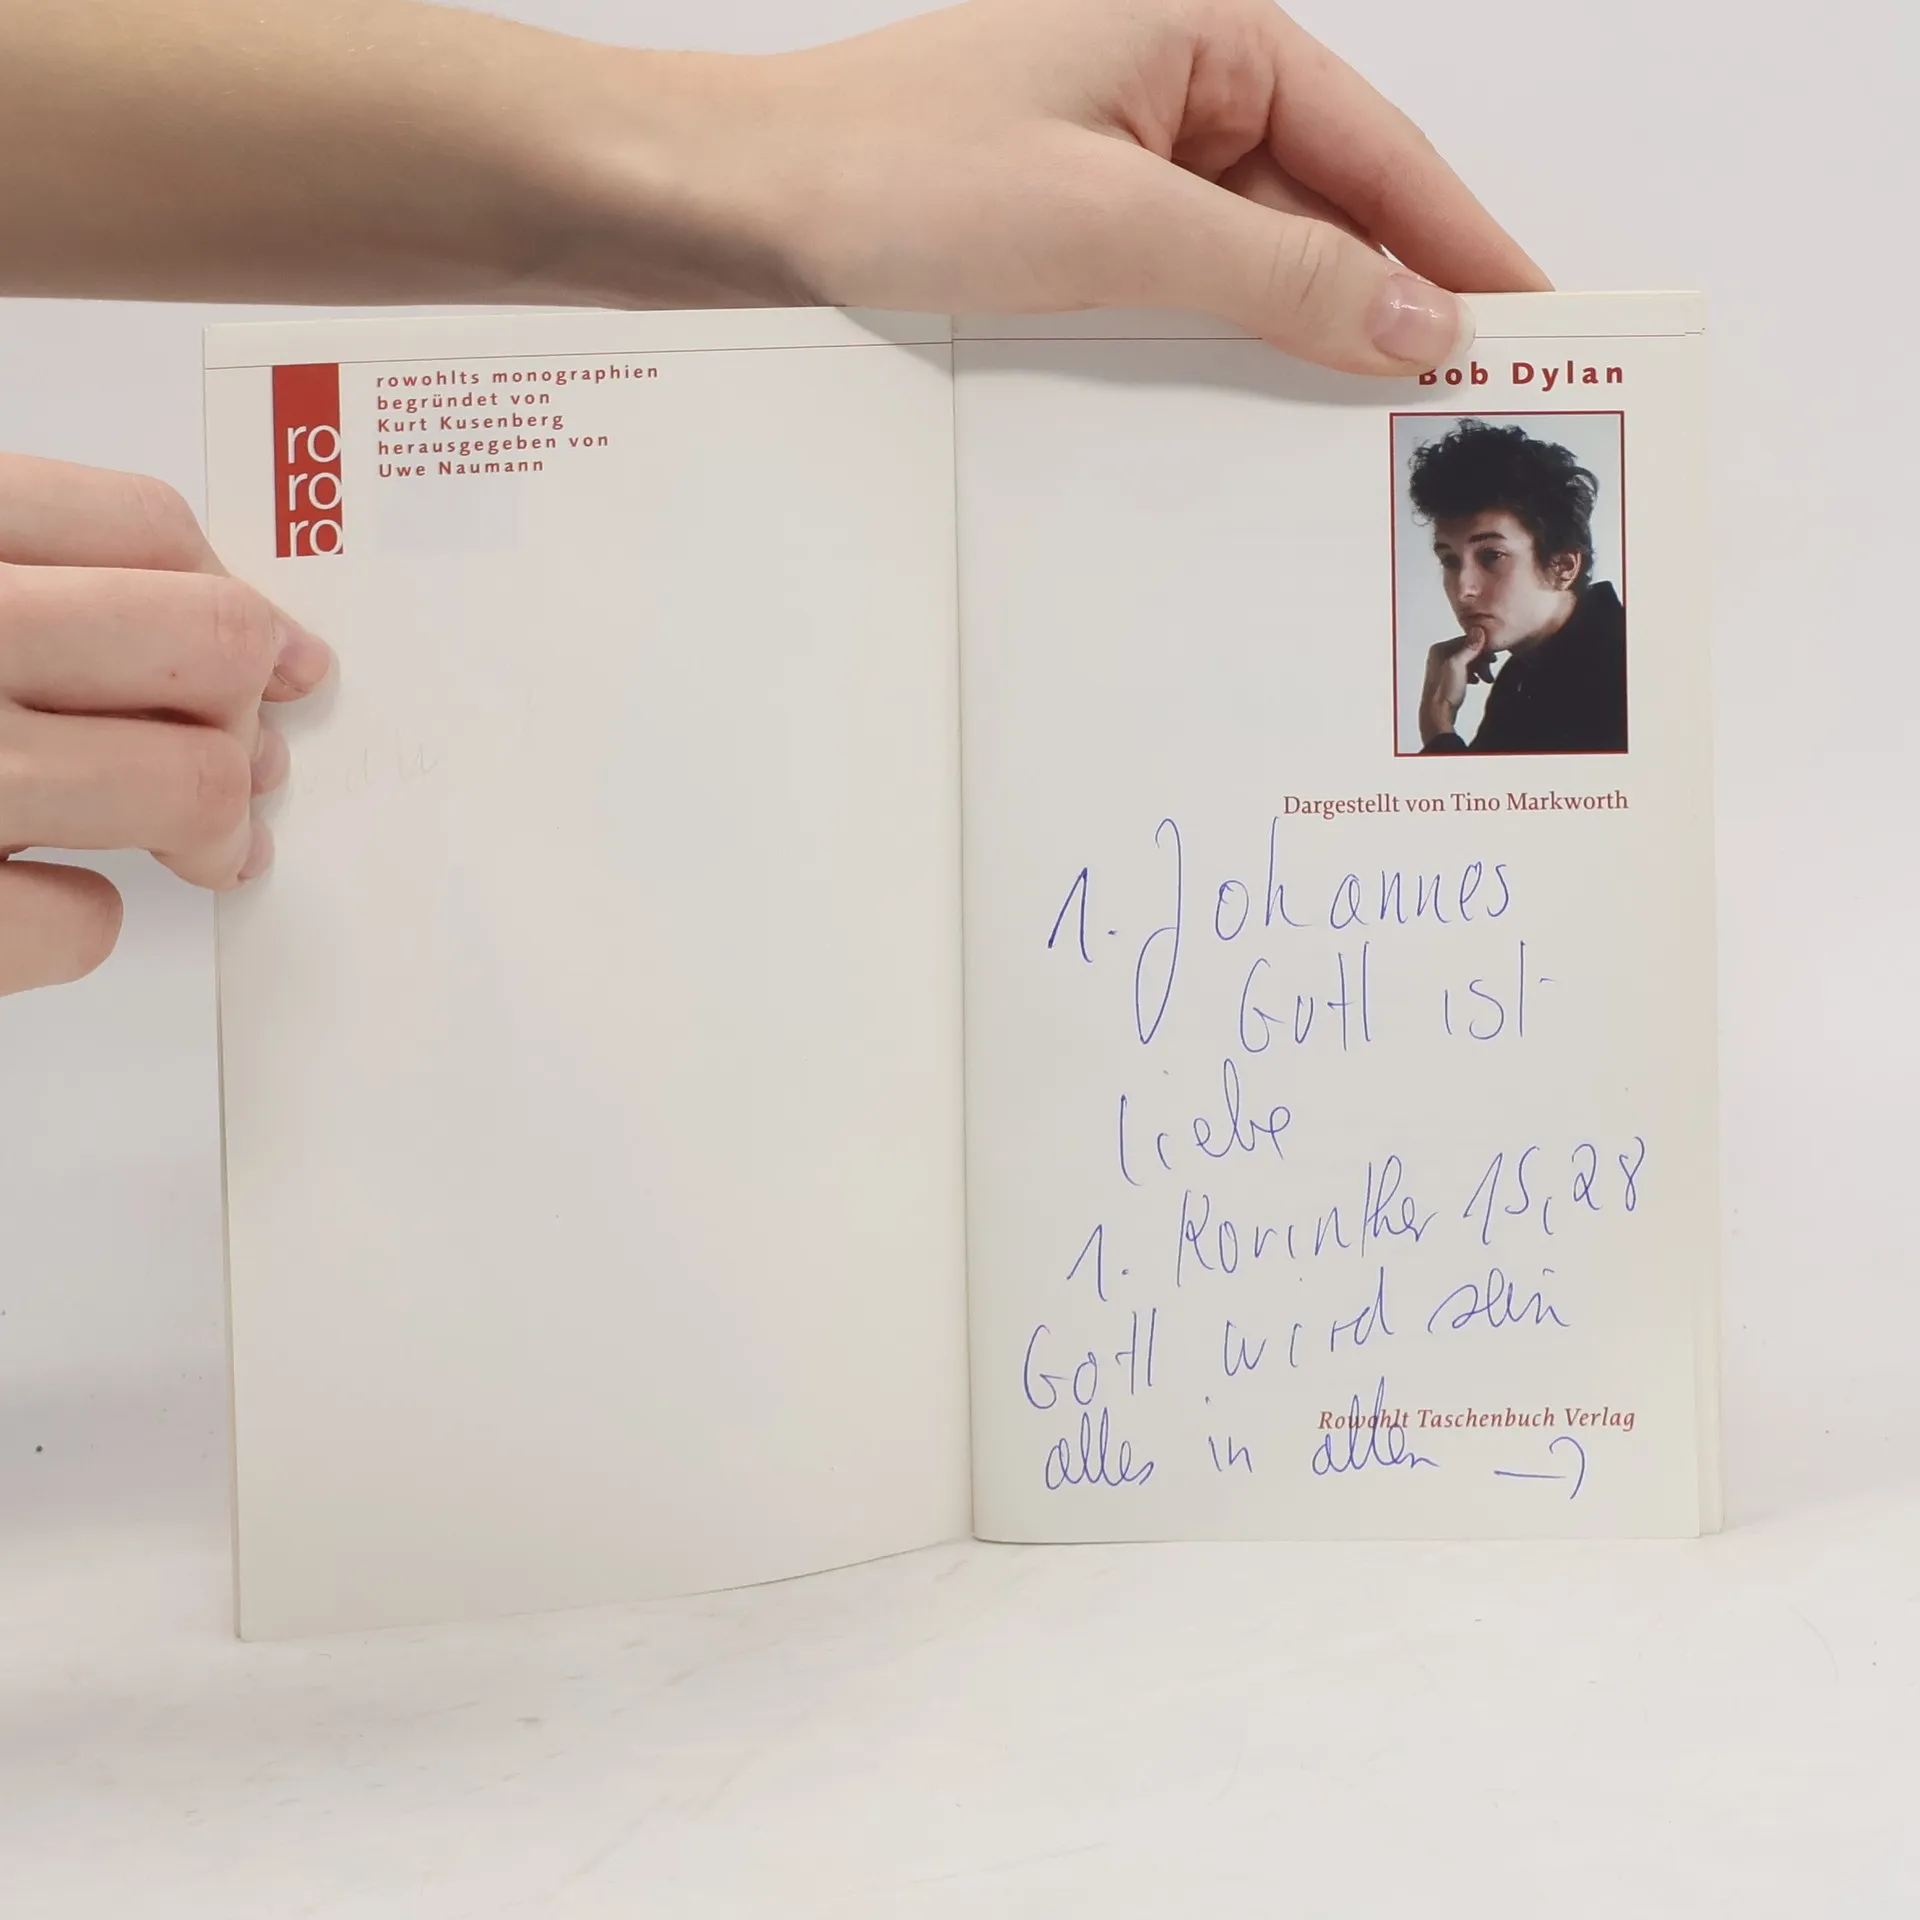 ro
ro
ro
rowohlts monographien
begründet von
Kurt Kusenberg
herausgegeben von
Uwe Naumann
Bob Dylan
Dargestellt von Tino Markworth
1. Johannes
Gott ist
Liebe
1. Korinther 15,28
Gott wird sein
alles in allen
Rowohlt Taschenbuch Verlag